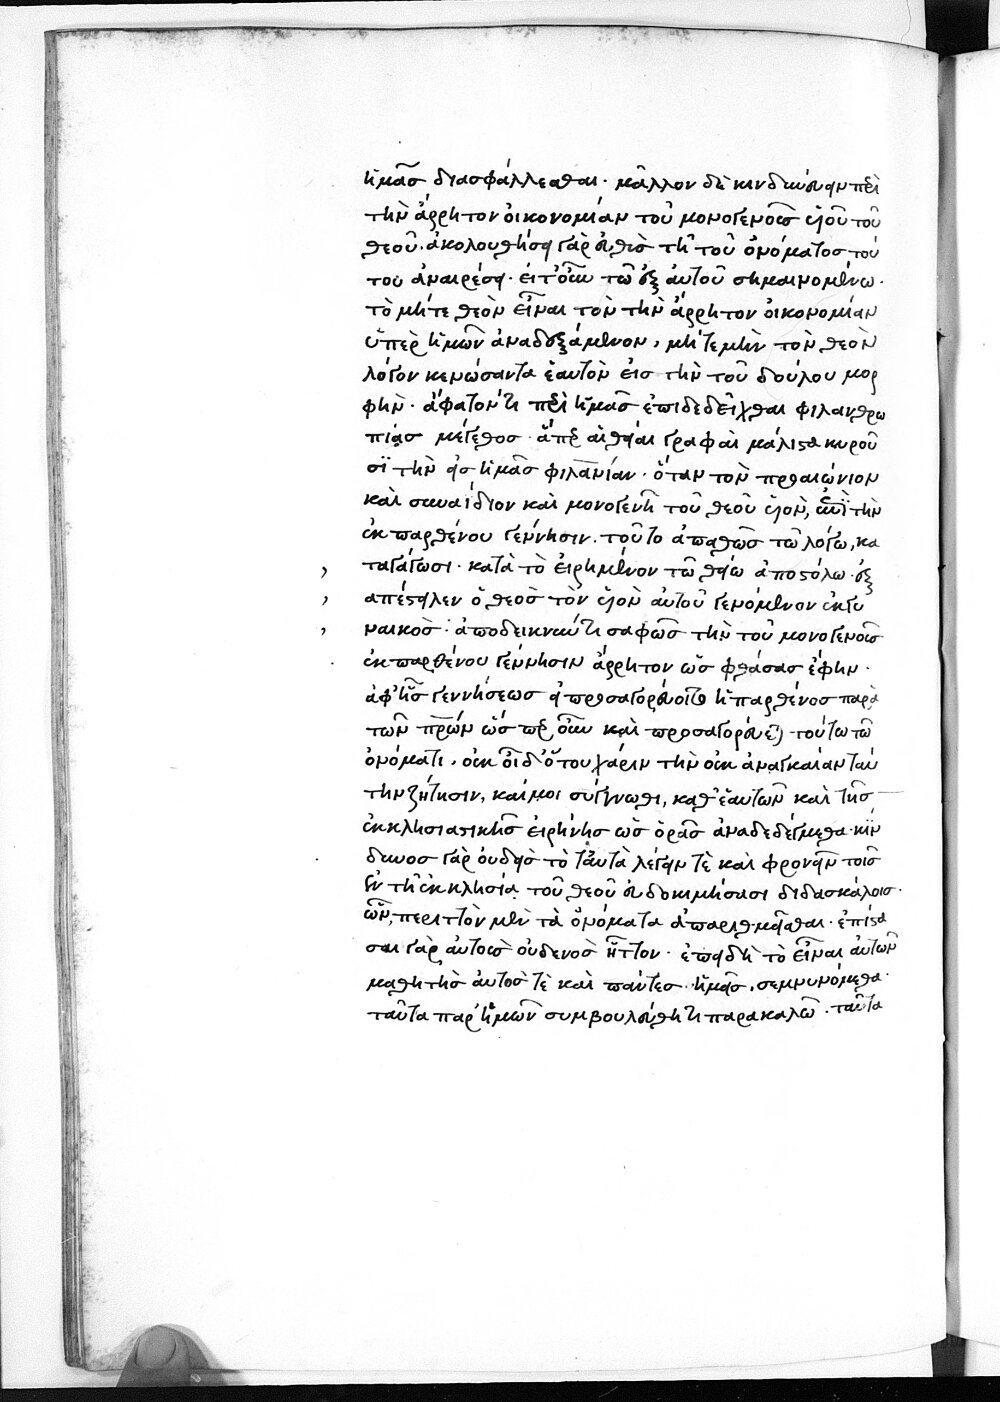 ἡμᾶς διασφάλλεσθαι· μᾶλλον δὲ κινδυνεύειν περὶ
τὴν ἄρρητον οἰκονομίαν τοῦ μονογενοῦς υἱοῦ τοῦ
θεοῦ. ἀκολουθήσει γὰρ εὐθὺς τῇ τοῦ ὀνόματος τού
του ἀναιρέσει· εἴτ' οὖν τῶ ἐξ αὐτοῦ σημαινομένω.
τὸ μήτε θεὸν εἶναι τὸν τὴν ἄρρητον οἰκονομίαν
ὑπὲρ ἡμῶν ἀναδεξάμενον, μήτε μὴν τὸν θεὸν
λόγον κενώσαντα ἑαυτὸν εἰς τὴν τοῦ δούλου μορ
φὴν· ἄφατόν τι περὶ ἡμᾶς ἐπιδεδεῖχθαι φιλανθρω
πίας μέγεθος· ἅπερ αἱ θεῖαι γραφαὶ μάλιστα κυροῦ
σι τὴν εἰς ἡμᾶς φιλανίαν· ὅταν τὸν προαιώνιον
καὶ συναΐδιον καὶ μονογενῆ τοῦ θεοῦ υἱὸν, ἐπὶ τὴν
ἐκ παρθένου γέννησιν. τοῦτο ἀπαθῶς τῶ λόγω, κα
ταγάγωσι· κατὰ τὸ εἰρημένον τῶ θείω ἀποστόλω· ἐξ
απέστειλεν ὁ θεὸς τὸν υἱὸν αὐτοῦ γενόμενον ἐκ γυ
ναικὸς· ἀποδεικνύντι σαφῶς τὴν τοῦ μονογενοῦς
ἐκ παρθένου γέννησιν ἄρρητον ὡς φθάσας ἔφην·
ἀφ' ἧς γεννήσεως εἰ προσαγορεύοιτο ἡ παρθένος παρὰ
τῶν πρων ὥσπερ οὖν καὶ προσαγορεύεται τούτω τῶ
ὀνόματι, οὐκ οἶδ' ὅτου χάριν τὴν οὐκ ἀναγκαίαν ταύ
την ζήτησιν, καί μοι σύγγνωθι, καθ' ἑαυτῶν καὶ τῆς
ἐκκλησιαστικῆς εἰρήνης ὡς ὁρᾶς ἀναδεδέγμεθα· κίν
δυνος γὰρ οὐδεὶς τὸ ταυτὰ λέγειν τὲ καὶ φρονεῖν τοῖς
ἐν τῇ ἐκκλησία τοῦ θεοῦ εὐδοκιμήσασι διδασκάλοις·
ὧν, περιττὸν μὲν τὰ ὀνόματα ἀπαριθμεῖσθαι· ἐπίστα
σαι γὰρ αὐτοὺς οὐδενὸς ἧττον· ἐπειδὴ τὸ εἶναι αὐτῶν
μαθητὴς αὐτός τὲ καὶ πάντες ἡμεῖς, σεμνυνόμεθα·
ταῦτα παρ' ἡμῶν συμβουλεύθητι παρακαλῶ. ταῦτα